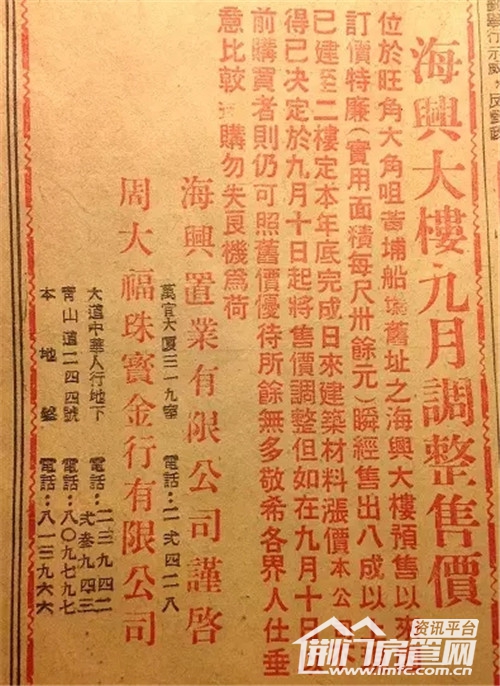 海興大樓九月調整售價
位於旺角大角咀黃埔船塢舊址之海興大樓預售以來
訂價特廉(實用面積每尺卅餘元)瞬經售出八成以
已建至二樓定本年底完成日來建築材料漲價本公
得已決定於九月十日起將售價調整但如在九月十日
前購買者則仍可照舊價優待所餘無多敬希各界人仕垂
意比較購勿失良機為荷
海興置業有限公司謹啓
萬宜大廈三一九室 電話:二弍四二八
周大福珠寶金行有限公司
大道中華人行地下 電話:二三九四二
弍叁九四三
青山道二四四號 電話:八〇九七九七
本地盤 電話:八一三九六六
荆门房管网
资讯平台
www.jmfc.com.cn